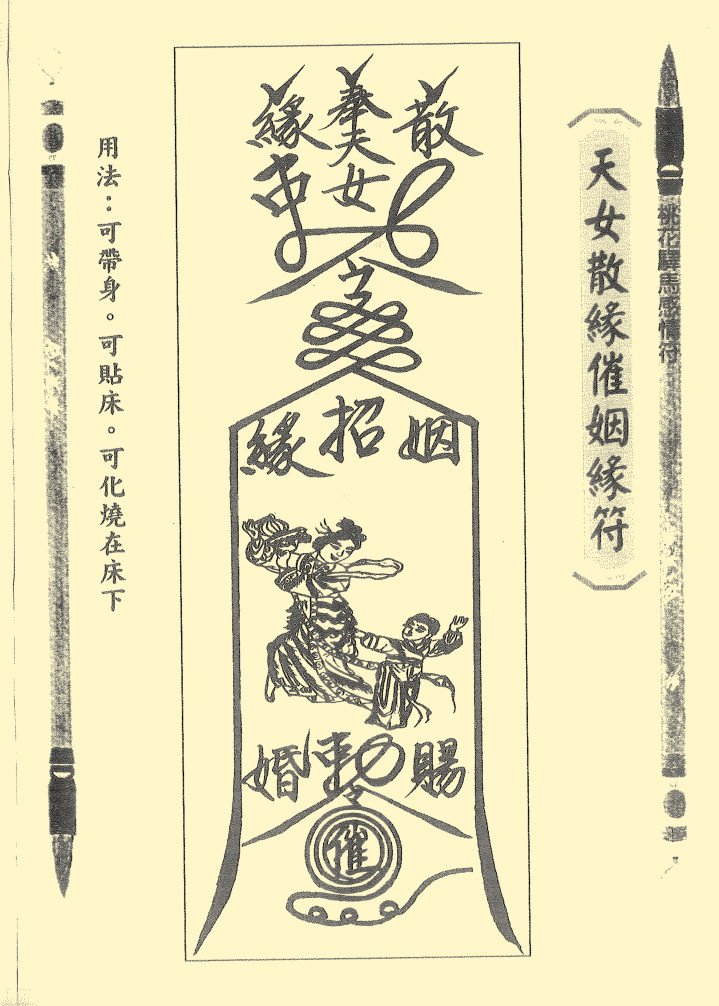 桃花驛馬感情符
天女散緣催姻緣符
散
奉天女
緣
姻招緣
賜
婚
催
用法：可帶身。可貼床。可化燒在床下